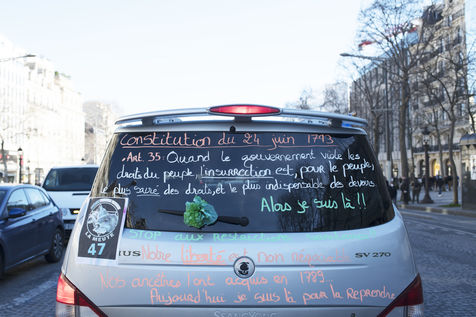 Constitution du 24 juin 1793
Art. 35. Quand le gouvernement viole les
droits du peuple, l'insurrection est, pour le peuple,
le plus sacré des droits, et le plus indispensable des devoirs.
Alors je suis là!!
LA MEUTE
47
STOP aux
IUS
Notre liberté est non négociable
SV 270
Nos ancêtres l'ont acquis en 1789
Aujourd'hui je suis là pour la Reprendre
SSANGYONG